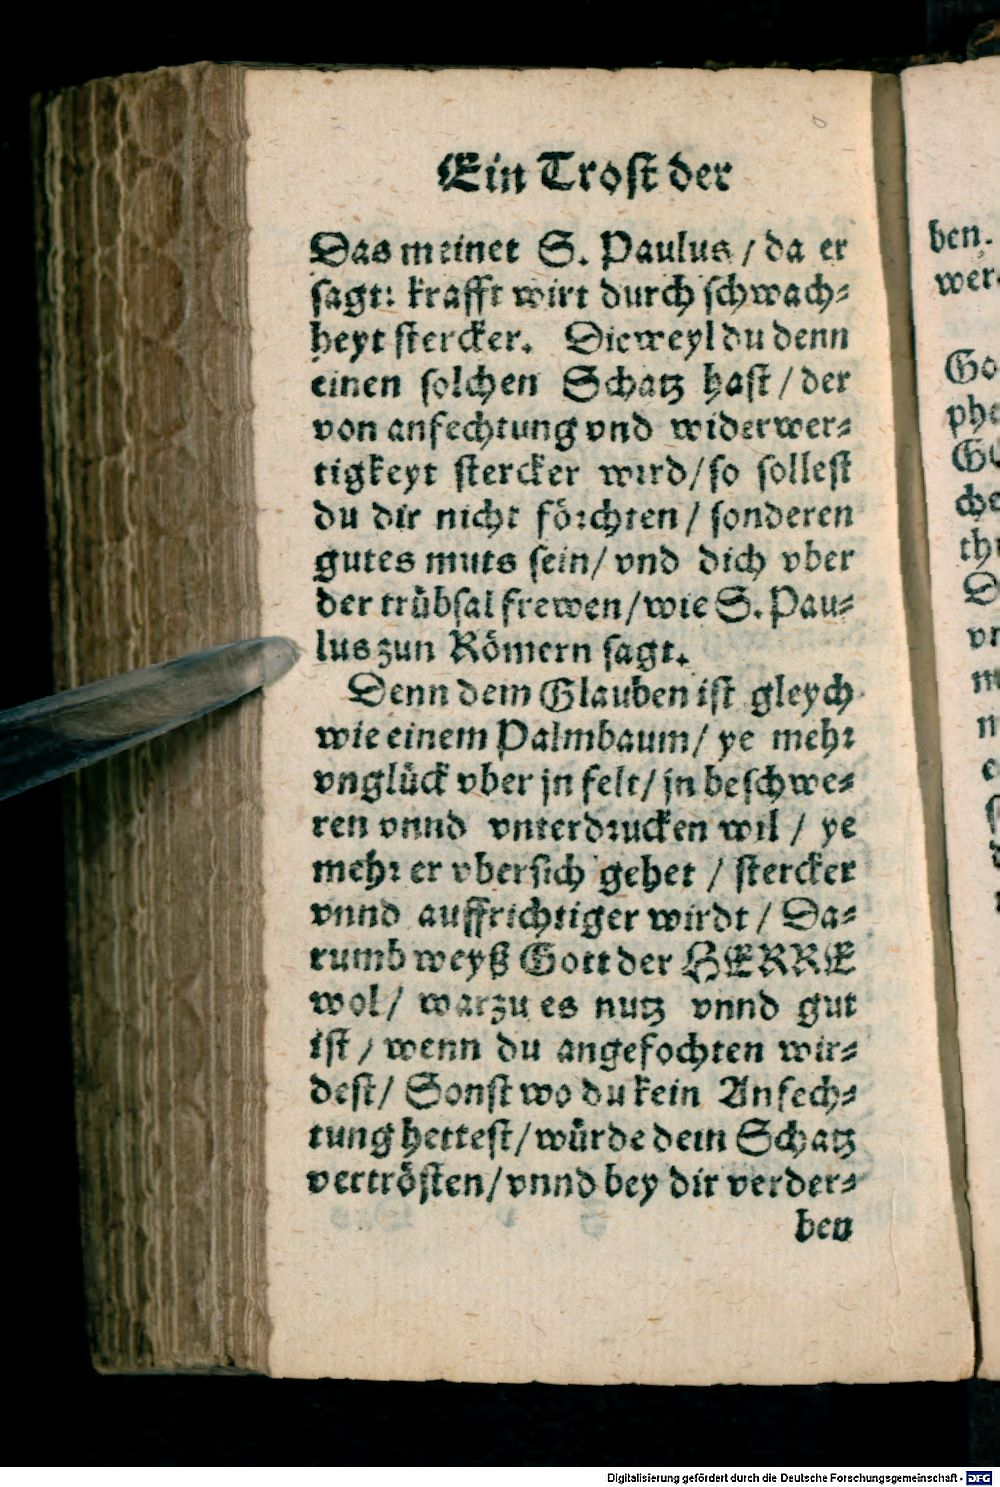 Ein Trost der
Das meinet S. Paulus / da er
sagt: krafft wirt durch schwach⸗
heyt stercker. Dieweyl du denn
einen solchen Schatz hast / der
von anfechtung vnd widerwer⸗
tigkeyt stercker wird / so sollest
du dir nicht förchten / sonderen
gutes muts sein / vnd dich vber
der trübsal frewen / wie S. Pau⸗
lus zun Römern sagt.
Denn dem Glauben ist gleych
wie einem Palmbaum / ye mehr
vnglück vber jn felt / jn beschwe⸗
ren vnnd vnterdrucken wil / ye
mehr er vbersich gehet / stercker
vnnd auffrichtiger wirdt / Da⸗
rumb weyß Gott der HERRE
wol / warzu es nutz vnnd gut
ist / wenn du angefochten wir⸗
dest / Sonst wo du kein Anfech⸗
tung hettest / würde dein Schatz
vertrösten / vnnd bey dir verder⸗
ben
ben.
wer
Go
phe
che
Digitalisierung gefördert durch die Deutsche Forschungsgemeinschaft - DFG